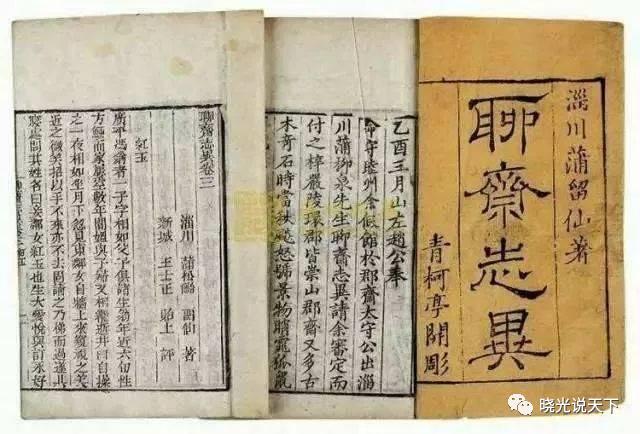 淄川蒲留仙著
聊齋志異
青柯亭開雕
乙酉三月山左趙公奉
命守睦州余假館於郡齋太守公出淄
川蒲柳泉先生聊齋志異請余審定而
付之梓嚴陵環郡皆崇山郡齋又多古
木奇石時當秋飈怒號景物睄窱狐鼠
聊齋志異卷三
淄川 蒲松齡 留仙 著
新城 王士正 貽上 評
紅玉
廣平馮翁者一子字相如父子俱諸生翁年近六旬性
方鯁而家屢空數年間媼與子婦又相繼逝井臼自操
之一夜相如坐月下忽見東鄰女自牆上來窺視之美
近之微笑招以手不來亦不去固請之乃梯而過遂共
寢處問其姓名曰妾鄰女紅玉也生大愛悅與訂永好
晓光说天下